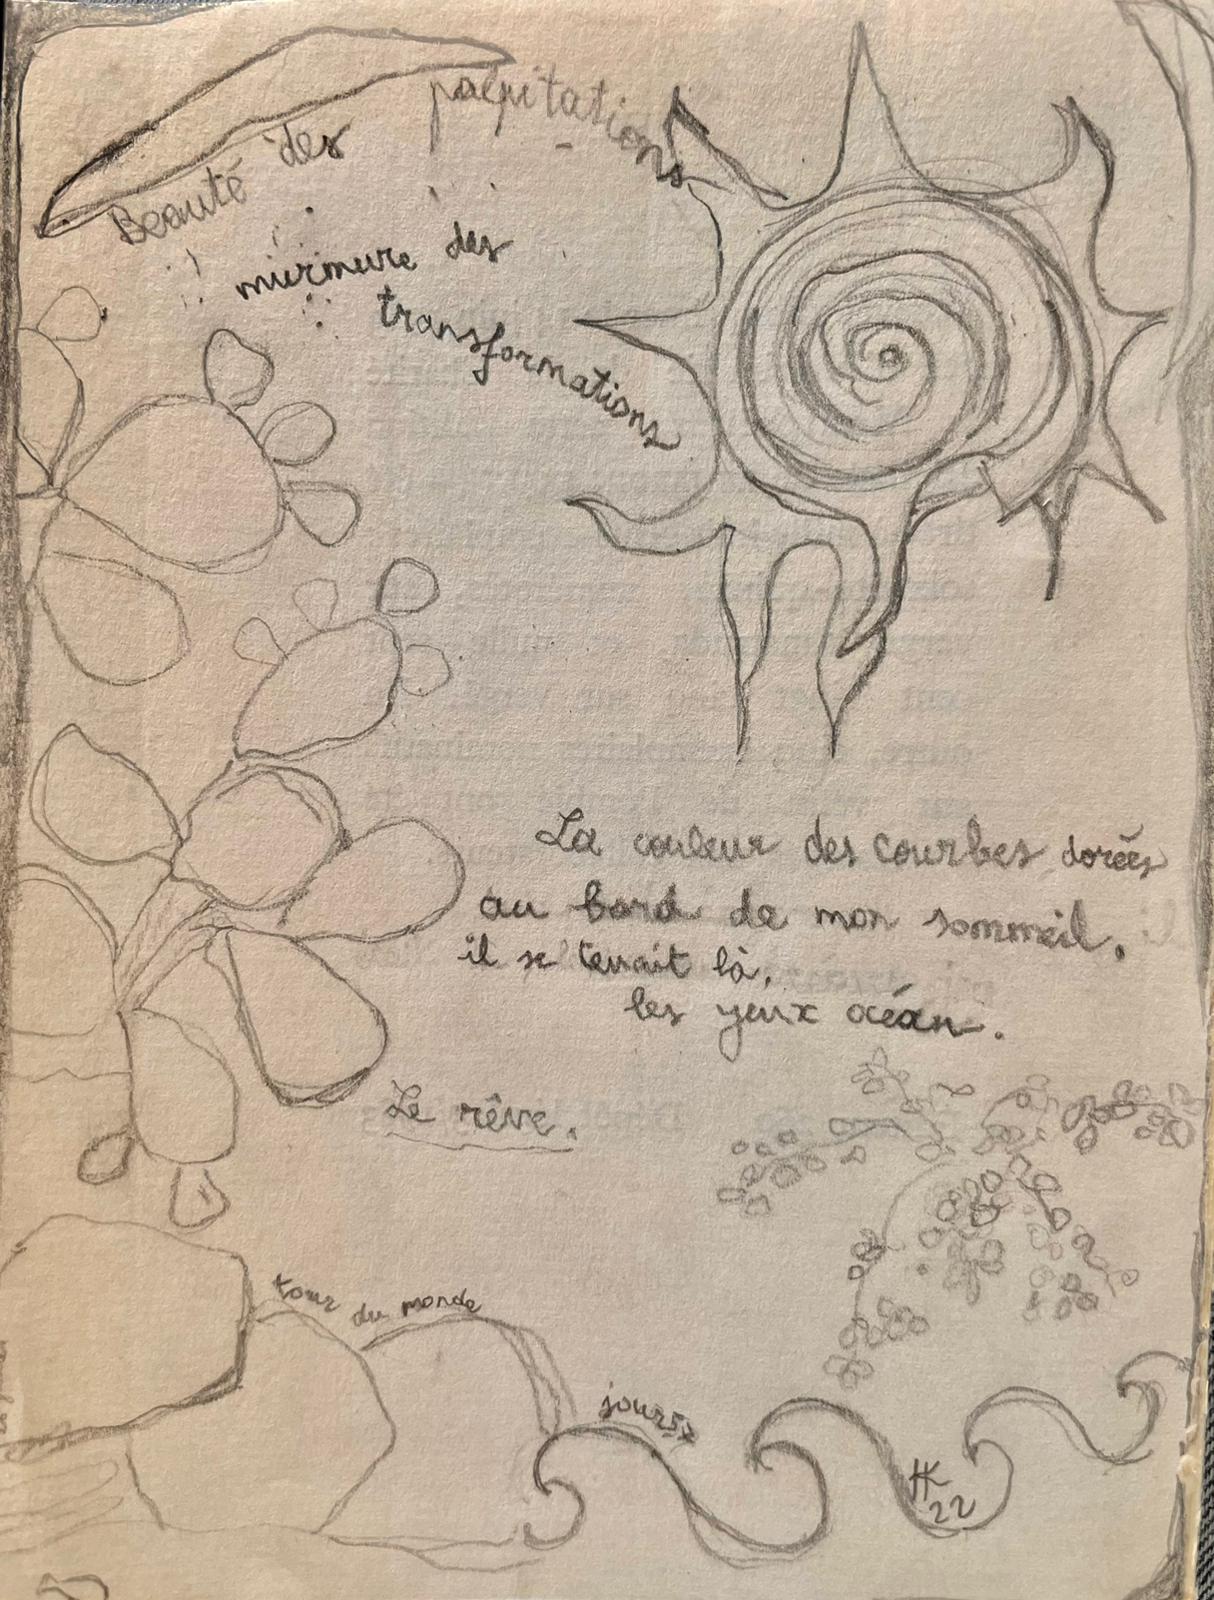 Beauté des palpitations
murmure des
transformations
La couleur des courbes dorées
au bord de mon sommeil.
il se tenait là,
les yeux océan.
Le rêve.
tour du monde
HK
22